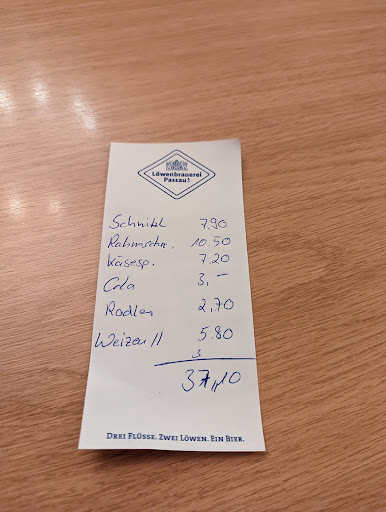 Löwenbrauerei
Passau!
Schnitzl 7.90
Rahmschn. 10.50
Käsesp. 7.20
Cola 3,–
Radler 2,70
Weizen || 5.80
3
37,10
DREI FLÜSSE. ZWEI LÖWEN. EIN BIER.